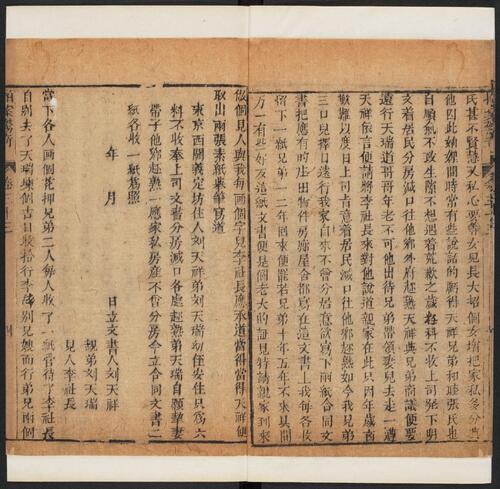 氏甚不賢慧又私心要等女兒長大招個女壻把家私多分與
他因此妯娌間時常有些說話的虧得天祥兄弟和睦張氏也
自順氣不致生隙不想遇着荒歉之歲六料不收上司發下明
文着居民分房減口往他鄉外府趂熟天祥與兄弟商議便要
遠行天瑞道哥哥年老不可他出待兄弟帶領妻兒去走一遭
天祥依言便請將李社長來對他說道親家在此只因年歲凶
歉難以度日上司旨意着居民減口往他鄉趂熟如今我兄弟
三口兒擇日遠行我家自來不曾分居意欲寫下兩紙合同文
書把應有的庄田物件房廊屋舍都寫在這文書上我每各收
留下一紙兄弟一二年回來便罷若兄弟十年五年不來其間
万一有些好歹這紙文書便是個老大的証見特請親家到來
做個見人與我每画個字兒李社長應承道當得當得天祥便
取出兩張素紙舉筆寫道
東京西關義定坊住人刘天祥弟刘天瑞幼侄安住只爲六
料不收奉上司文書分房減口各處趂熟弟天瑞自願挈妻
帶子他鄉趂熟一應家私房産不曾分另今立合同文書二
紙各收一紙爲照
年 月 日立文書人刘天祥
親弟刘天瑞
見人李社長
當下各人画個花押兄弟二人每人收了一紙管待了李社長
自別去了天瑞揀個吉日裝拾行李辭別兄嫂而行弟兄兩個
拍案驚奇
卷三十三